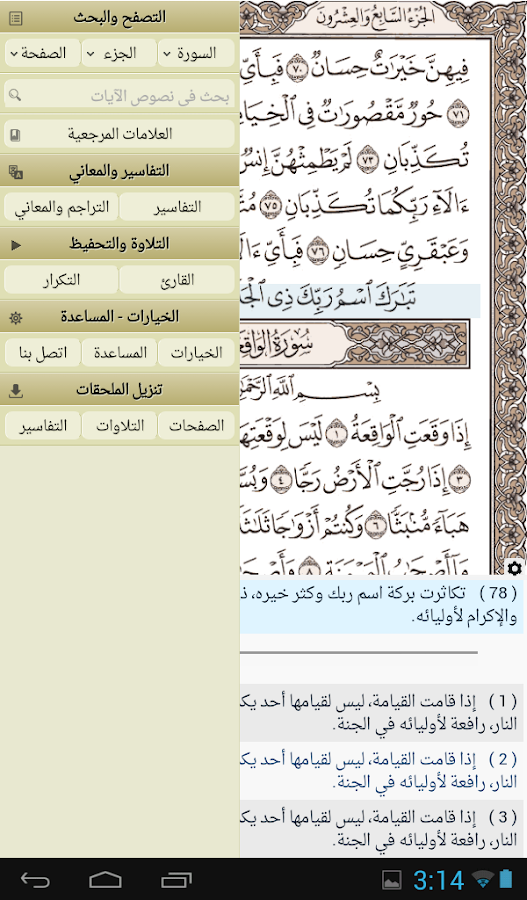 التصفح والبحث
السورة الجزء الصفحة
بحث في نصوص الآيات
العلامات المرجعية
التفاسير والمعاني
التفاسير التراجم والمعاني
التلاوة والتحفيظ
القارئ التكرار
الخيارات - المساعدة
الخيارات المساعدة اتصل بنا
تنزيل الملحقات
الصفحات التلاوات التفاسير
الجزء السابع والعشرون
فِيهِنَّ خَيْرَاتٌ حِسَانٌ ٧٠ فَبِأَيِّ
٧١ حُورٌ مَّقْصُورَاتٌ فِي الْخِيَامِ
تُكَذِّبَانِ ٧٣ لَمْ يَطْمِثْهُنَّ إِنسٌ
ءَالَاءِ رَبِّكُمَا تُكَذِّبَانِ ٧٥
وَعَبْقَرِيٍّ حِسَانٍ ٧٦ فَبِأَيِّ ءَالَا
تَبَارَكَ اسْمُ رَبِّكَ ذِي
سُورَةُ الْوَاقِعَ
بِسْمِ اللَّهِ الرَّحْمَ
إِذَا وَقَعَتِ الْوَاقِعَةُ ١ لَيْسَ لِوَقْعَتِهَا
٣ إِذَا رُجَّتِ الْأَرْضُ رَجًّا ٤ وَبُسَّ
هَبَاءً مُّنبَثًّا ٦ وَكُنتُمْ أَزْوَاجًا ثَلَاثَ
( 78 ) تكاثرت بركة اسم ربك وكثر خيره، ذ
والإكرام لأوليائه.
( 1 ) إذا قامت القيامة، ليس لقيامها أحد يك
النار، رافعة لأوليائه في الجنة.
( 2 ) إذا قامت القيامة، ليس لقيامها أحد يك
النار، رافعة لأوليائه في الجنة.
( 3 ) إذا قامت القيامة، ليس لقيامها أحد يك
النار، رافعة لأوليائه في الجنة.
3:14